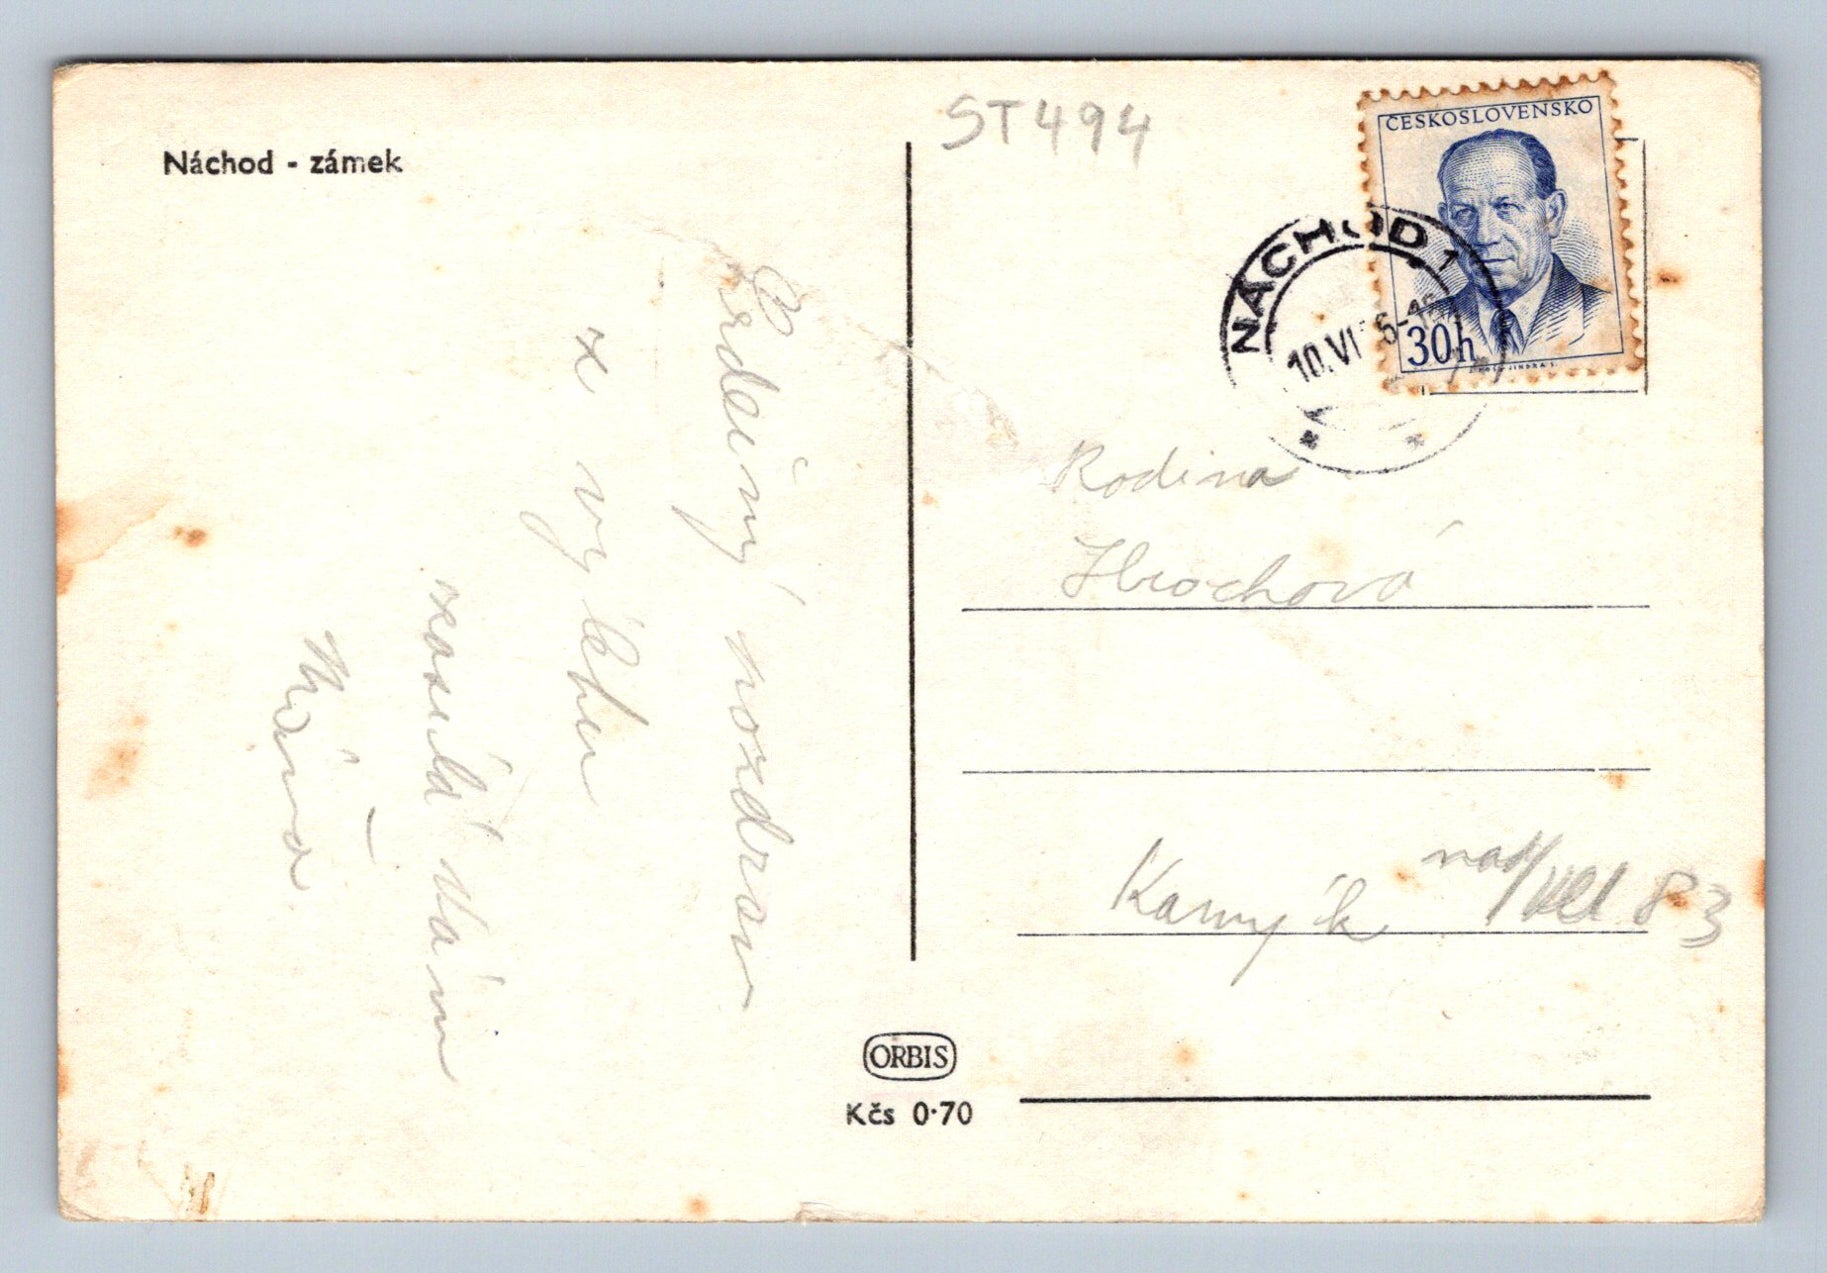 Náchod - zámek
ST494
ČESKOSLOVENSKO
30h
NÁCHOD 1
10.VI
Srdečný pozdrav
z výletu
zasílá Vám
Máňa
Rodina
Hrochová
Kamýk nad/Vlt 83
ORBIS
Kčs 0·70